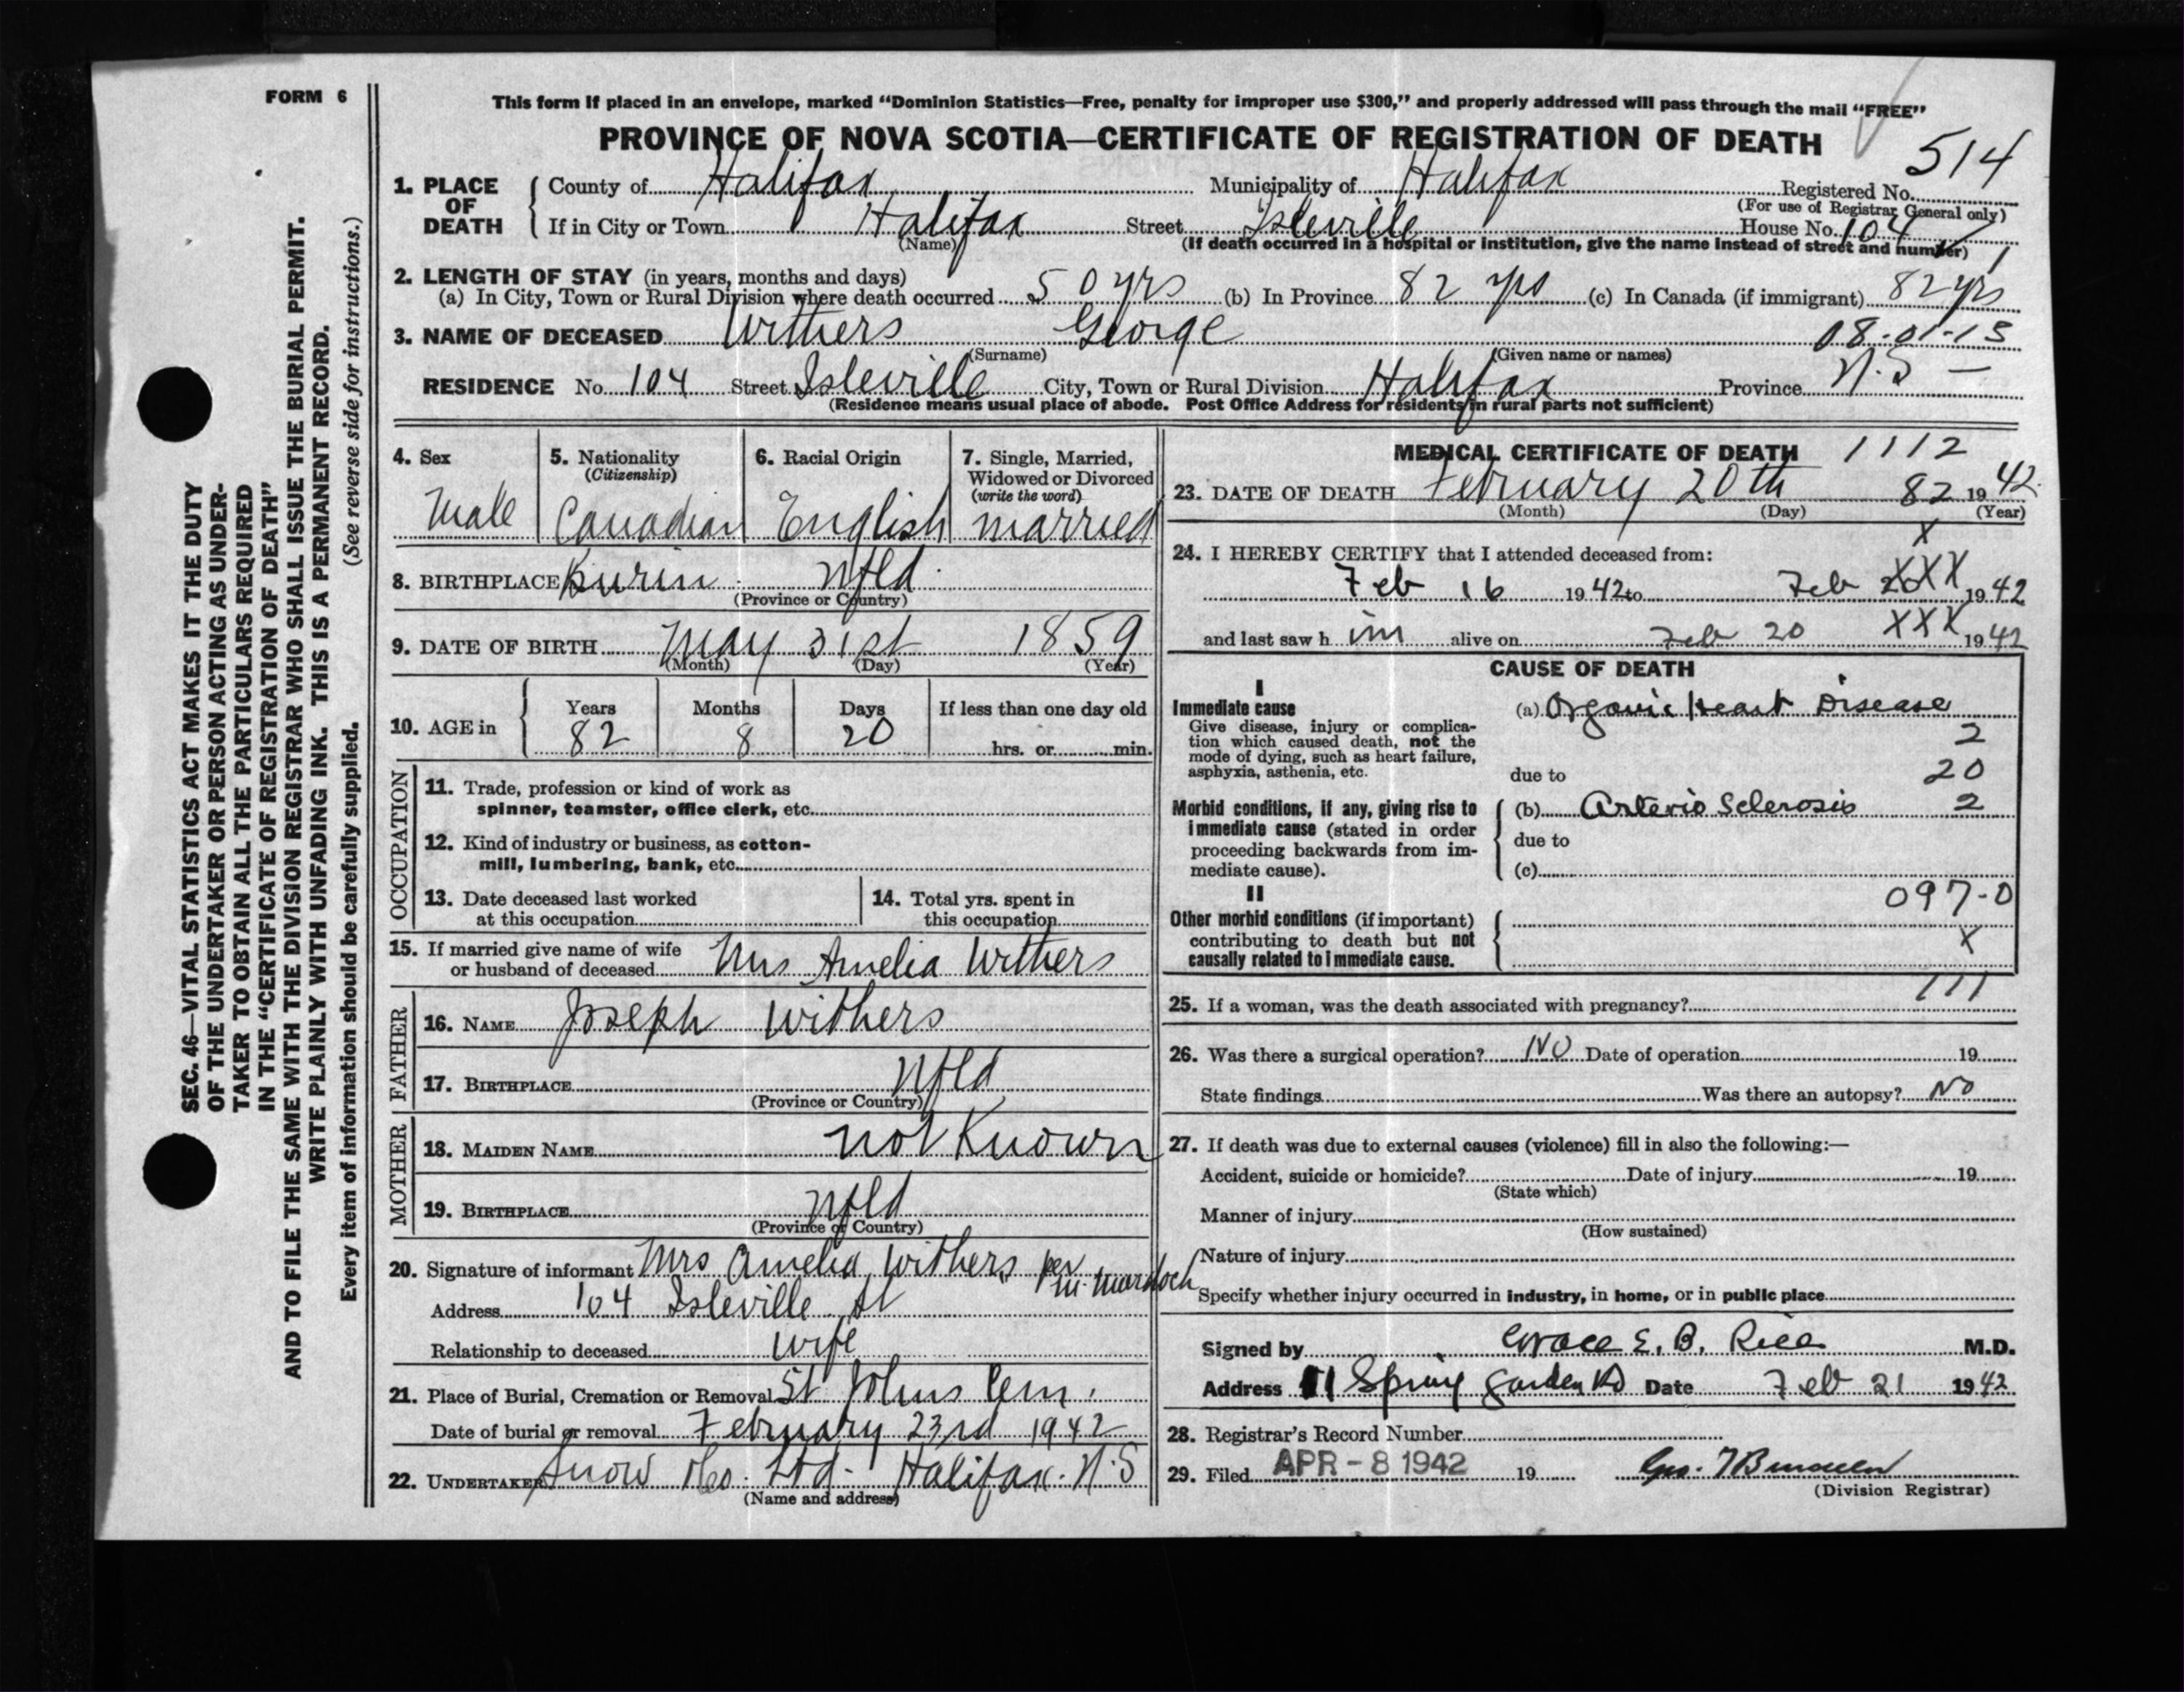 FORM 6
This form if placed in an envelope, marked “Dominion Statistics—Free, penalty for improper use $300,” and properly addressed will pass through the mail “FREE”
PROVINCE OF NOVA SCOTIA—CERTIFICATE OF REGISTRATION OF DEATH
514
1. PLACE OF DEATH
County of Halifax Municipality of Halifax Registered No.
(For use of Registrar General only)
If in City or Town Halifax Street Isleville House No. 104
(Name) (If death occurred in a hospital or institution, give the name instead of street and number) 1
2. LENGTH OF STAY (in years, months and days)
(a) In City, Town or Rural Division where death occurred 50 yrs (b) In Province 82 yrs (c) In Canada (if immigrant) 82 yrs
3. NAME OF DECEASED Withers George 08-01-13
(Surname) (Given name or names)
RESIDENCE No. 104 Street Isleville City, Town or Rural Division Halifax Province N.S —
(Residence means usual place of abode. Post Office Address for residents in rural parts not sufficient)
4. Sex
Male
5. Nationality
(Citizenship)
Canadian
6. Racial Origin
English
7. Single, Married, Widowed or Divorced
(write the word)
married
8. BIRTHPLACE Burin Nfld.
(Province or Country)
9. DATE OF BIRTH May 31st 1859
(Month) (Day) (Year)
10. AGE in Years Months Days If less than one day old
82 8 20 hrs. or min.
OCCUPATION
11. Trade, profession or kind of work as
spinner, teamster, office clerk, etc.
12. Kind of industry or business, as cotton-
mill, lumbering, bank, etc.
13. Date deceased last worked
at this occupation
14. Total yrs. spent in
this occupation
15. If married give name of wife
or husband of deceased Mrs Amelia Withers
FATHER
16. NAME Joseph Withers
17. BIRTHPLACE Nfld
(Province or Country)
MOTHER
18. MAIDEN NAME not Known
19. BIRTHPLACE Nfld
(Province or Country)
20. Signature of informant Mrs Amelia Withers per
M. Murdoch
Address 104 Isleville St
Relationship to deceased wife
21. Place of Burial, Cremation or Removal St Johns Cem.
Date of burial or removal February 23rd 1942
22. UNDERTAKER Snow &Co. Ltd. Halifax. N.S
(Name and address)
MEDICAL CERTIFICATE OF DEATH 1112
23. DATE OF DEATH February 20th 82 1942
(Month) (Day) (Year)
X
24. I HEREBY CERTIFY that I attended deceased from:
XXX
Feb 16 1942 to Feb 20 1942
and last saw him alive on Feb 20 XXX 1942
CAUSE OF DEATH
I
Immediate cause
Give disease, injury or complica-
tion which caused death, not the
mode of dying, such as heart failure,
asphyxia, asthenia, etc.
(a) Organic Heart Disease
2
due to 20
Morbid conditions, if any, giving rise to
immediate cause (stated in order
proceeding backwards from im-
mediate cause).
(b) Arterio Sclerosis 2
due to
(c)
097-0
II
Other morbid conditions (if important)
contributing to death but not
causally related to immediate cause.
X
111
25. If a woman, was the death associated with pregnancy?
26. Was there a surgical operation? NO Date of operation 19
State findings Was there an autopsy? No
27. If death was due to external causes (violence) fill in also the following:—
Accident, suicide or homicide? Date of injury 19
(State which)
Manner of injury
(How sustained)
Nature of injury
Specify whether injury occurred in industry, in home, or in public place
Signed by Grace E. B. Rice M.D.
Address 11 Spring Garden Rd Date Feb 21 1942
28. Registrar's Record Number
29. Filed APR - 8 1942 19
(Division Registrar)
SEC. 46—VITAL STATISTICS ACT MAKES IT THE DUTY
OF THE UNDERTAKER OR PERSON ACTING AS UNDER-
TAKER TO OBTAIN ALL THE PARTICULARS REQUIRED
IN THE “CERTIFICATE OF REGISTRATION OF DEATH”
AND TO FILE THE SAME WITH THE DIVISION REGISTRAR WHO SHALL ISSUE THE BURIAL PERMIT.
WRITE PLAINLY WITH UNFADING INK. THIS IS A PERMANENT RECORD.
Every item of information should be carefully supplied. (See reverse side for instructions.)